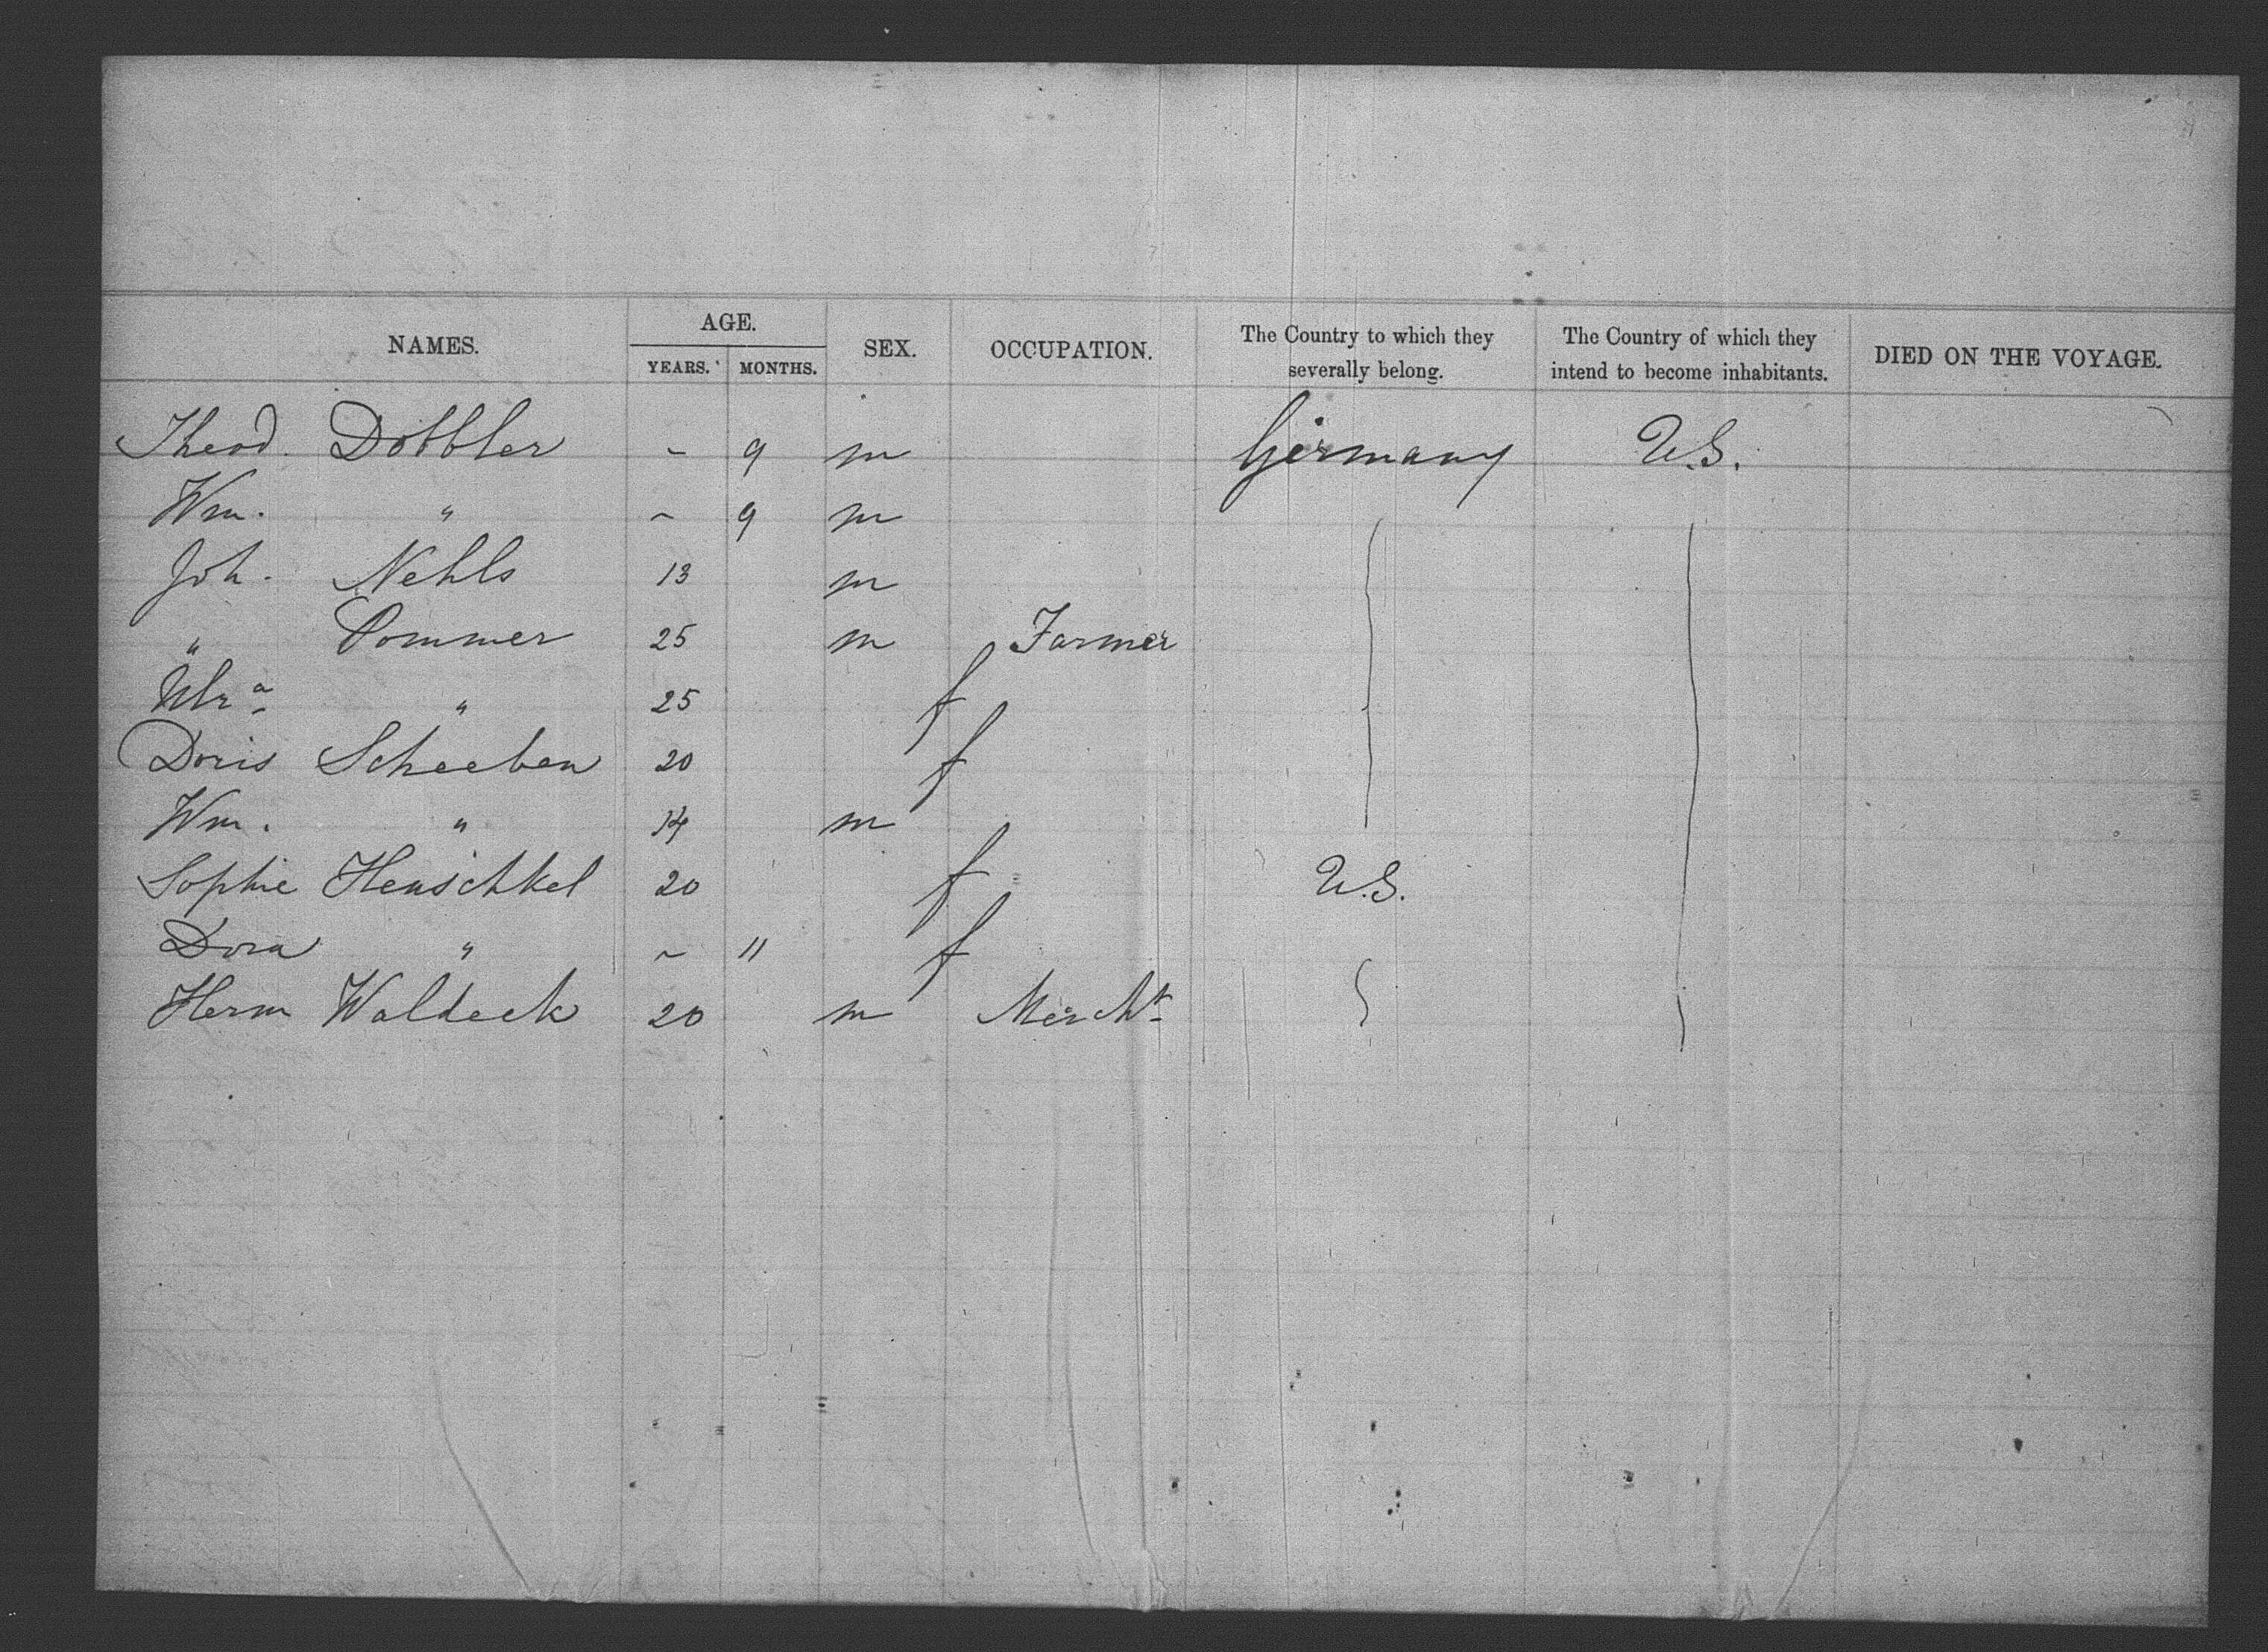 NAMES. AGE. YEARS. MONTHS. SEX. OCCUPATION. The Country to which they severally belong. The Country of which they intend to become inhabitants. DIED ON THE VOYAGE.
Theod. Dobbler - 9 m Germany U.S.
Wm. " - 9 m
Joh. Nehls 13 m
" Pommer 25 m Farmer
" 25 f
Doris Scheeben 20 f
Wm. " 14 m
Sophie Henschkel 20 f U.S.
Dora " - 11 f
Herm Waldeck 20 m Mercht